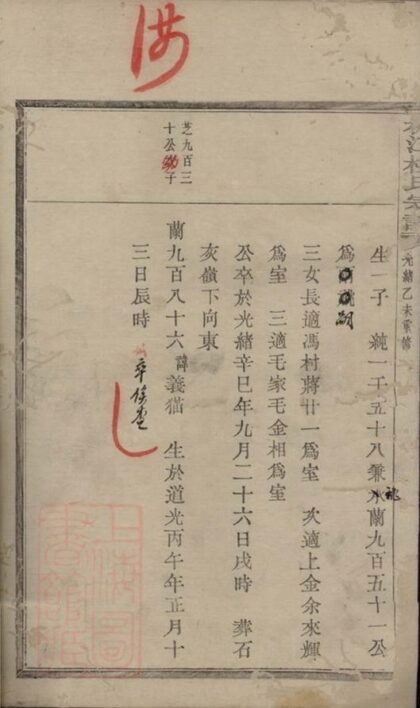 光緒乙未重修
生一子 純一千五十八兼祧蘭九百五十一公
爲
三女長適馮村蔣廿一爲室 次適上金余來輝
爲室 三適毛家毛金相爲室
公卒於光緒辛巳年九月二十六日戌時 葬石
亥嶺下向東
芝九百三
十公子
蘭九百八十六諱義猫 生於道光丙午年正月十
三日辰時
卒俟查
上海圖書館藏